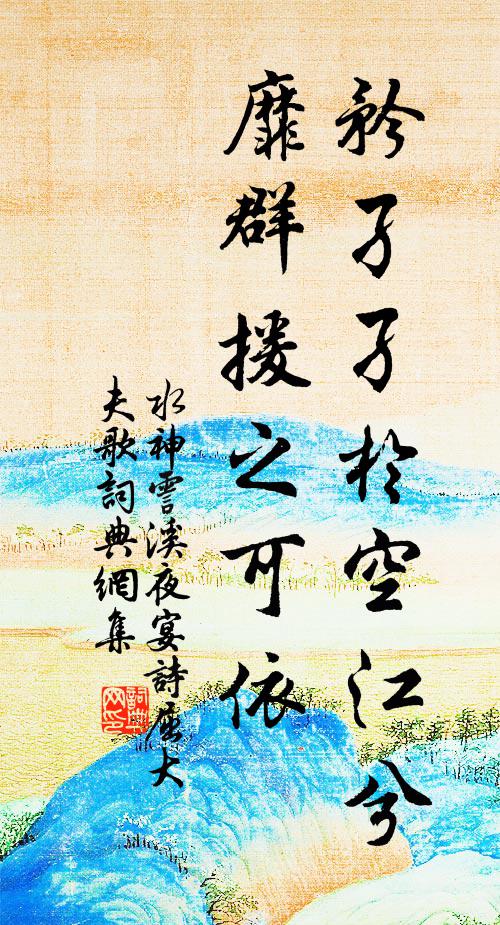 矜孑孑於空江兮
靡群援之可依
水神霅溪夜宴詩屈大
夫歌詞典網集